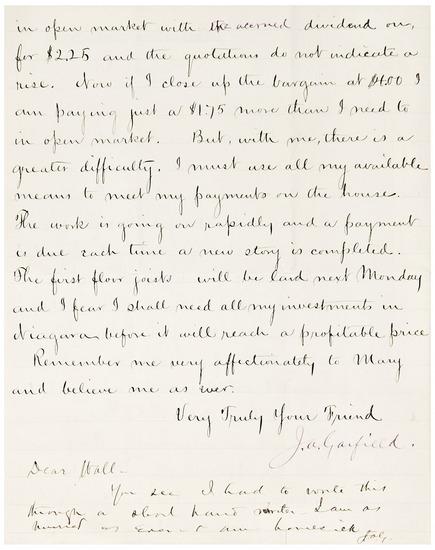 in open market with the accrued dividend on,
for $2.25 and the quotations do not indicate a
rise. Now if I close up the bargain at $4.00 I
am paying just a $1.75 more than I need to
in open market. But, with me, there is a
greater difficulty. I must use all my available
means to meet my payments on the house.
The work is going on rapidly and a payment
is due each time a new story is completed.
The first floor joists will be laid next Monday
and I fear I shall need all my investments in
Niagara before it will reach a profitable price
Remember me very affectionately to Mary
and believe me as ever.
Very Truly Your Friend
J. A. Garfield.
Dear Hall-
You see I had to write this
through a short hand writer I am as
hurried as ever & am homesick